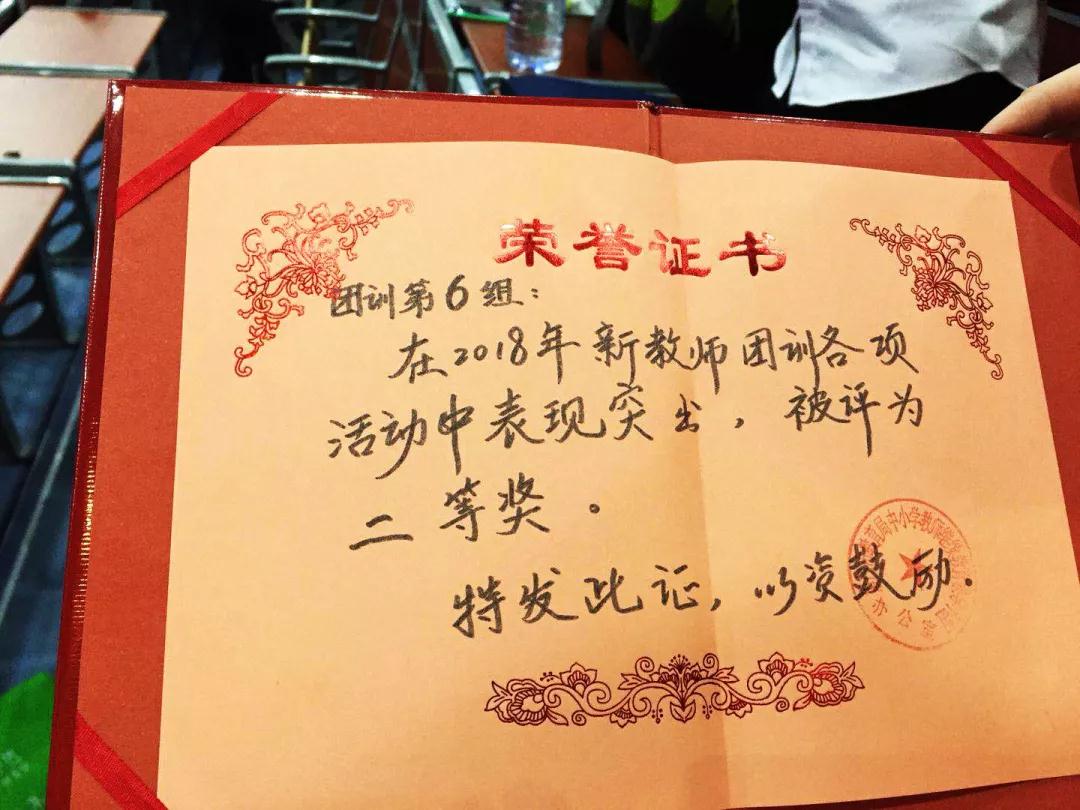 荣誉证书
团训第6组:
在2018年新教师团训各项
活动中表现突出,被评为
二等奖。
特发此证,以资鼓励.
育局中小学教师继续
办公室